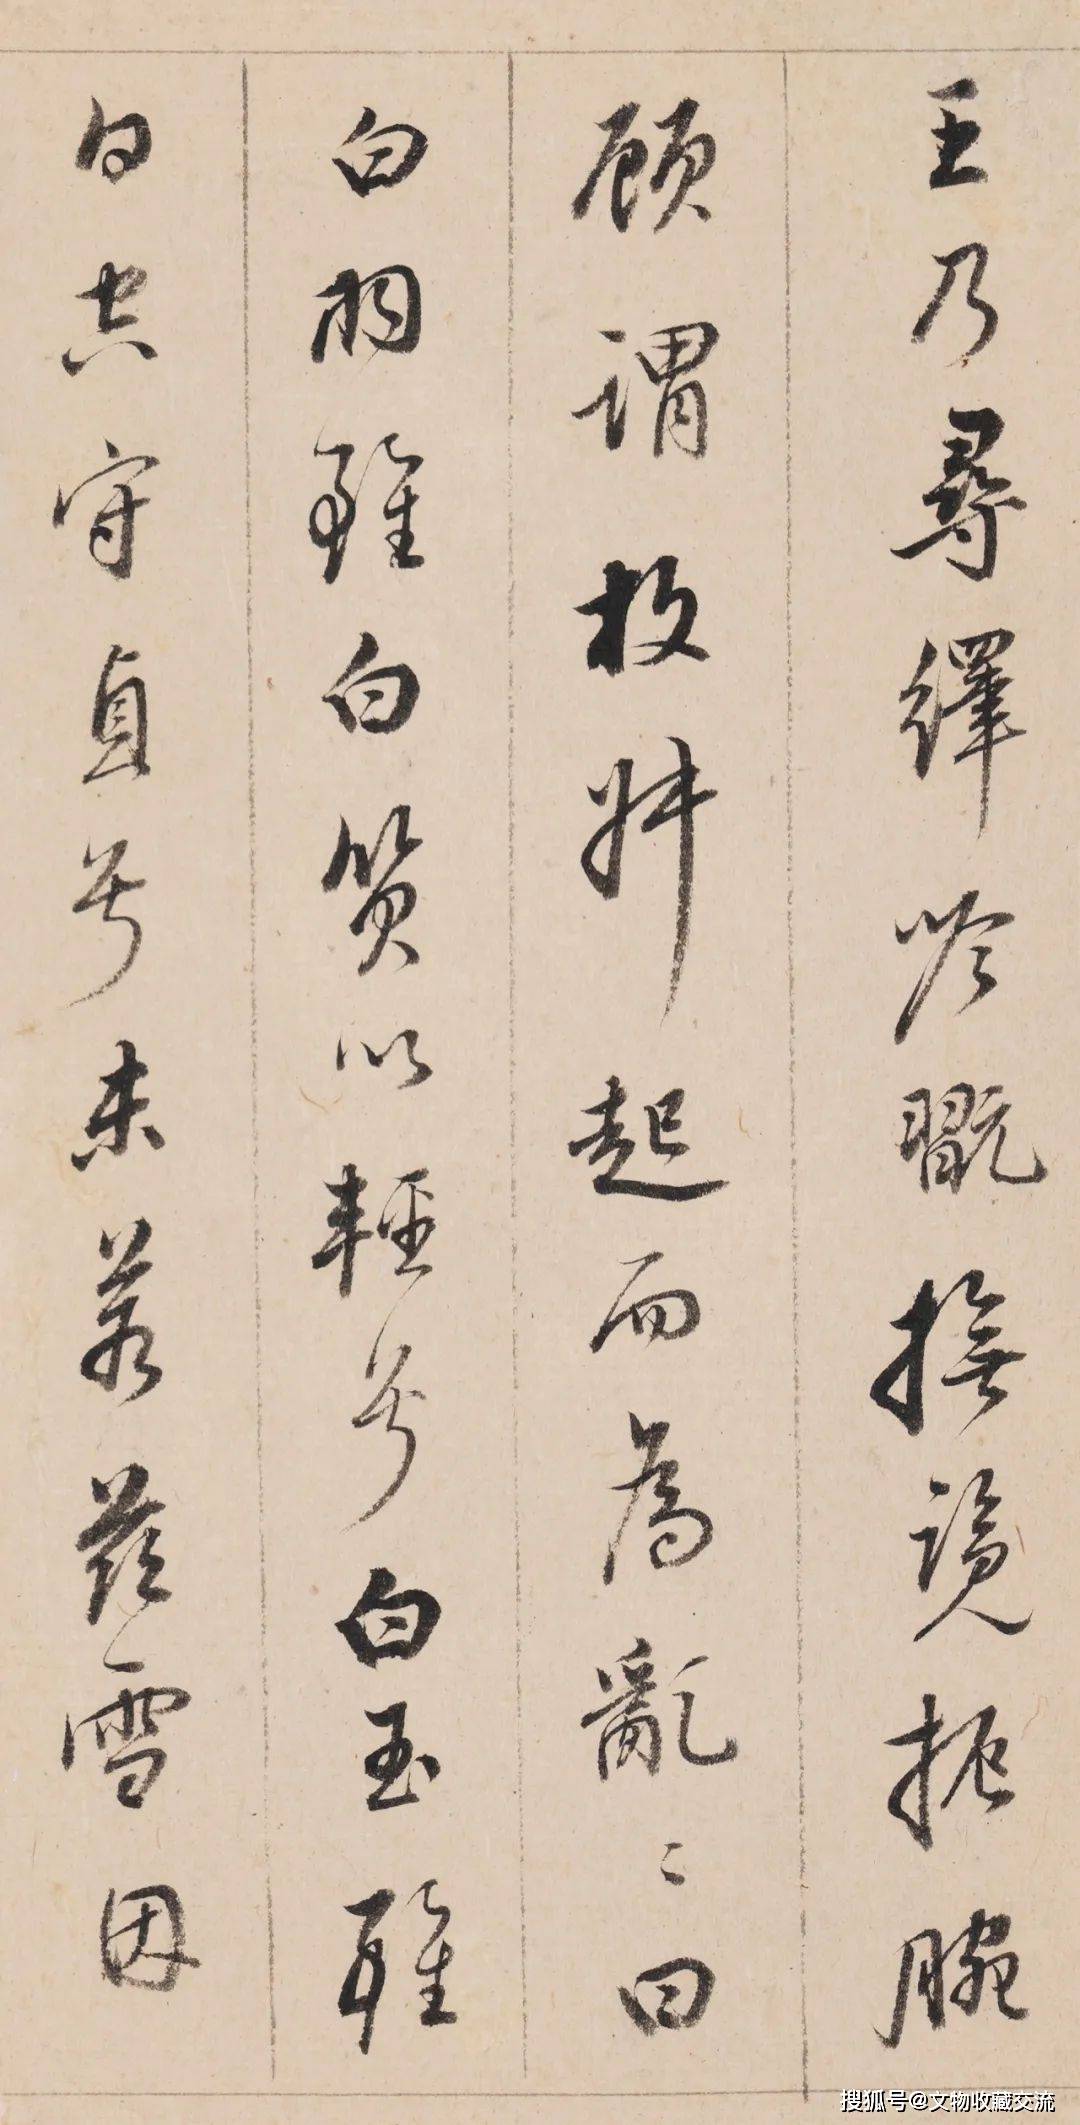 王乃尋繹吟翫撫覽扼腕
顧謂枚叔起而為亂〻曰
白羽雖白質以輕兮白玉雖
白空守貞兮未若茲雪因
搜狐号@文物收藏交流